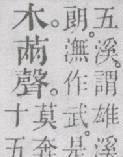 五溪。謂雄溪
朗。潕作武。是
木。㒼聲。莫奔
十五